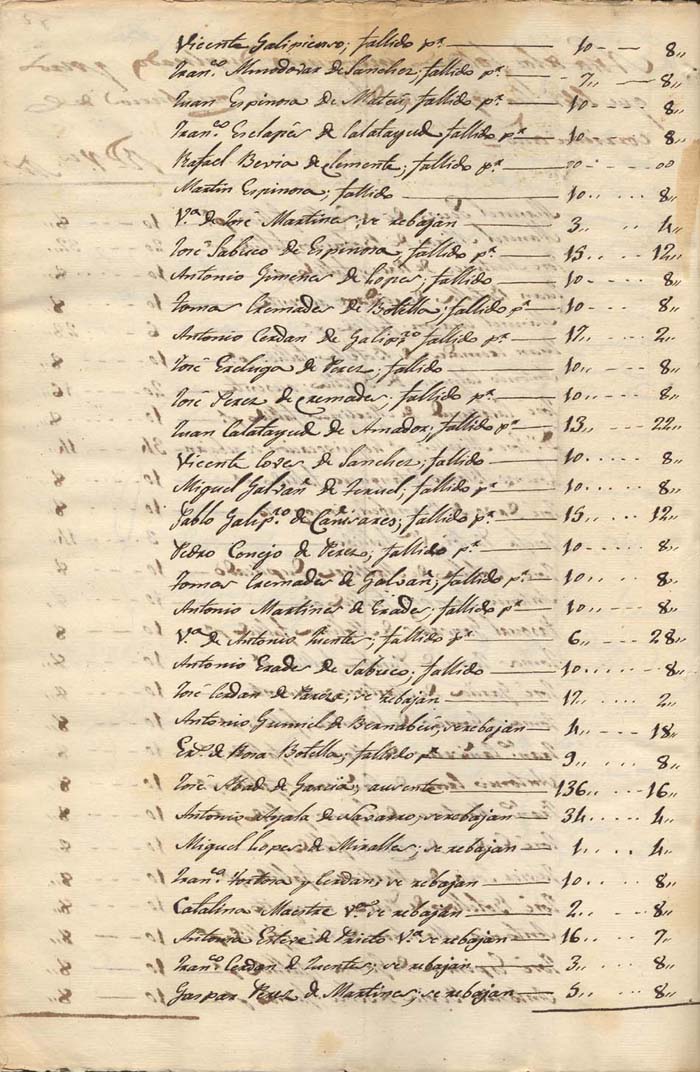 Vicente Galipienso; fallido pr. — 10 - - - 8„
Franco. Almodovar de Sanchez, fallido pr. - 7„ - - 8„
Juan Espinosa de Mateu, fallido pr. — 10 - - - 8„
Franco. Esclapés de Calatayud fallido pr. — 10 - - - 8„
Rafael Bevia de Clemente; fallido pr. — 20 - - - 00
Martin Espinosa; fallido — 10„ . . . 8„
Va. de José Martines; se rebajan — 3„ . . . 4„
José Sabuco de Espinosa, fallido pr. — 15 . . . . 12„
Antonio Gimenes de Lopes, fallido — 10 - - - 8„
Tomas Cremades de Botella; fallido pr. — 10 - - - 8„
Antonio Cerdan de Galipzo. fallido pr. — 17„ . . . 2„
José Ercluga de Perez; fallido — 10„ - - - 8„
José Perez de Cremades, fallido pr. — 10„ - - - 8„
Juan Calatayud de Amador; fallido pr. — 13„ . . . 22„
Vicente de Sanchez; fallido — 10„ . . . 8„
Miguel Galvañ de Teruel; fallido pr. — 10„ . . . 8„
Pablo Galipzo. de Cañivares; fallido pr. — 15„ . . . 12„
Pedro Conejo de Perez; fallido pr. — 10„ - - - 8„
Tomas Cremades de Galvañ; fallido pr. — 10„ - - - 8„
Antonio Martines de Erades; fallido pr. — 10„ - - - 8„
Va. de Antonio Fuentes; fallido pr. — 6„ . . . 28„
Antonio Erades de Sabuco; fallido — 10„ . . . 8„
José Cerdan de; se rebajan — 17„ . . . 2„
Antonio Gumiel de Bernabeu; se rebajan — 4„ - - - 18„
de Rosa Botella; fallido pr. — 9„ . . . 8„
José Abad de Garcia; ausente — 136„ . . . 16„
Antonio Ayala de Navarro; se rebajan — 34„ . . . 4„
Miguel Lopes de Miralles; se rebajan — 1„ . . . 4„
Franca. Tortosa y Cerdan; se rebajan — 10„ . . . 8„
Catalina Maestre Va. se rebajan — 2„ . . . 8„
Antonia Esteve de Prieto Va. se rebajan — 16„ . . . 7„
Franco. Cerdan de Fuentes; se rebajan — 3„ . . . 8„
Gaspar Perez de Martines; se rebajan — 5„ . . . 8„